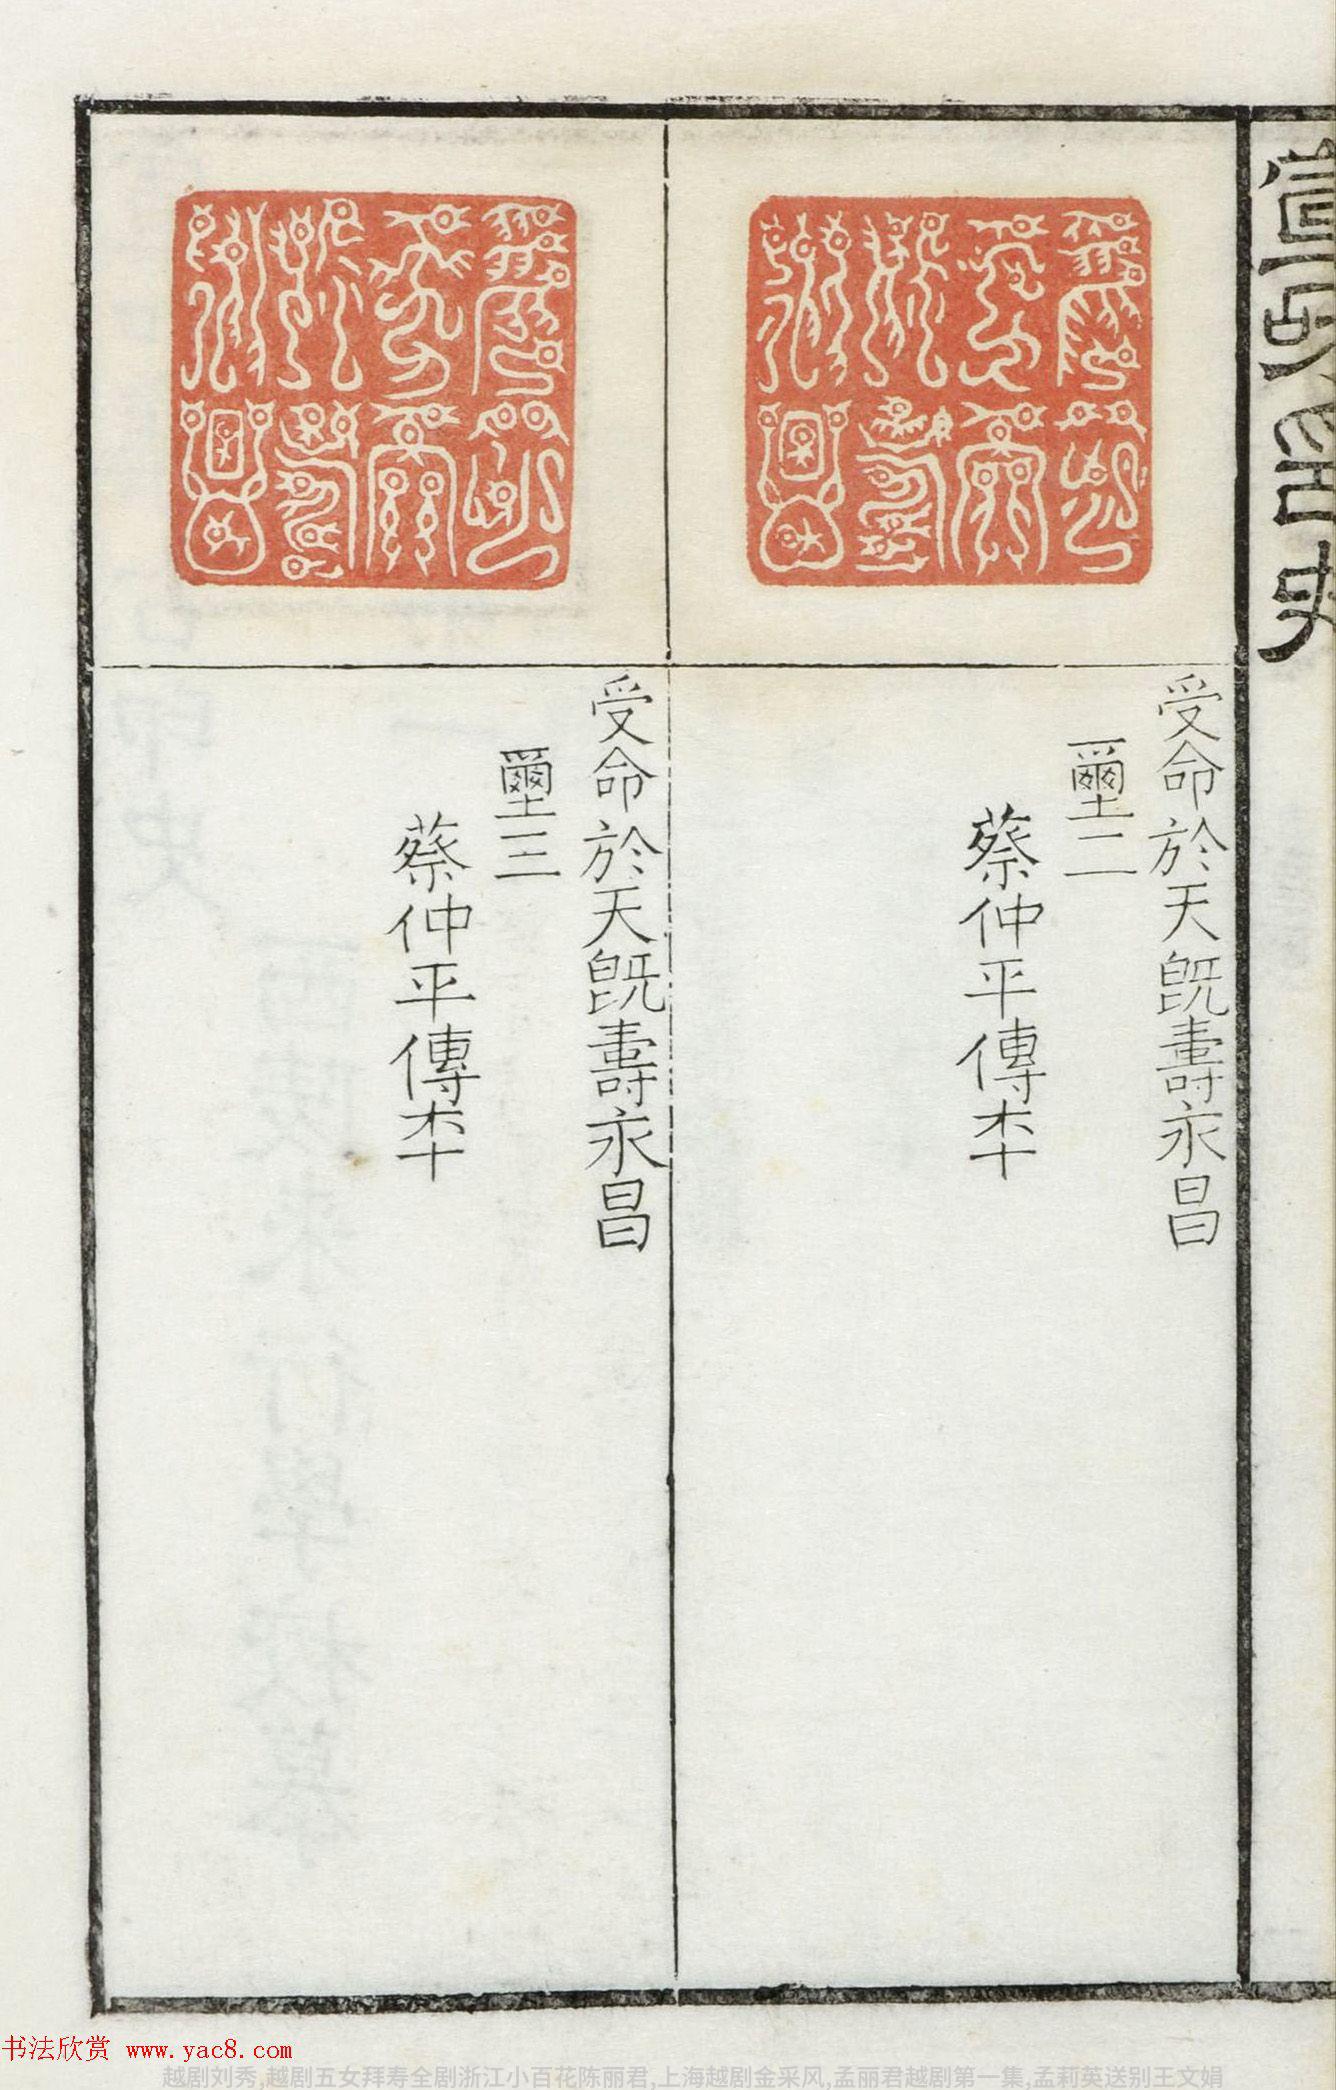 受命於天既壽永昌
璽二
蔡仲平傳本
受命於天既壽永昌
璽三
蔡仲平傳本
书法欣赏 www.yac8.com
越剧刘秀,越剧五女拜寿全剧浙江小百花陈丽君,上海越剧金采风,孟丽君越剧第一集,孟莉英送别王文娟